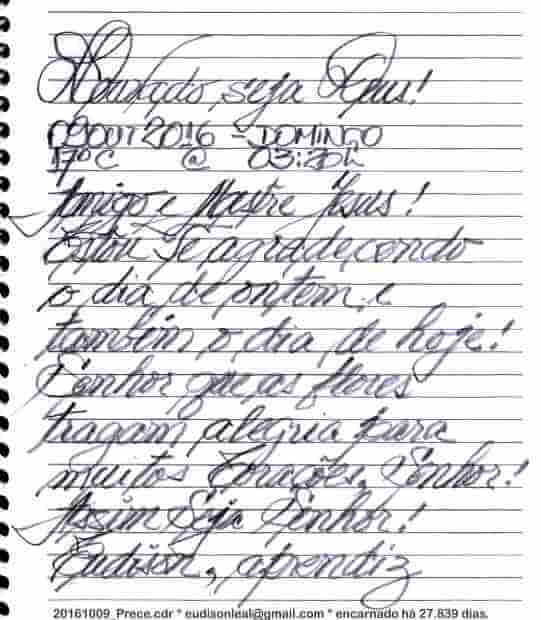 Louvado seja Deus!
09OUT2016 - DOMINGO
17°C @ 03:20h
Amigo e Mestre Jesus!
Estou Te agradecendo
o dia de ontem e
também o dia de hoje!
Senhor que as flores
tragam alegria para
muitos Corações, Senhor!
Assim Seja Senhor!
Eudison, aprendiz
20161009_Prece.cdr * eudisonleal@gmail.com * encarnado há 27.839 dias.